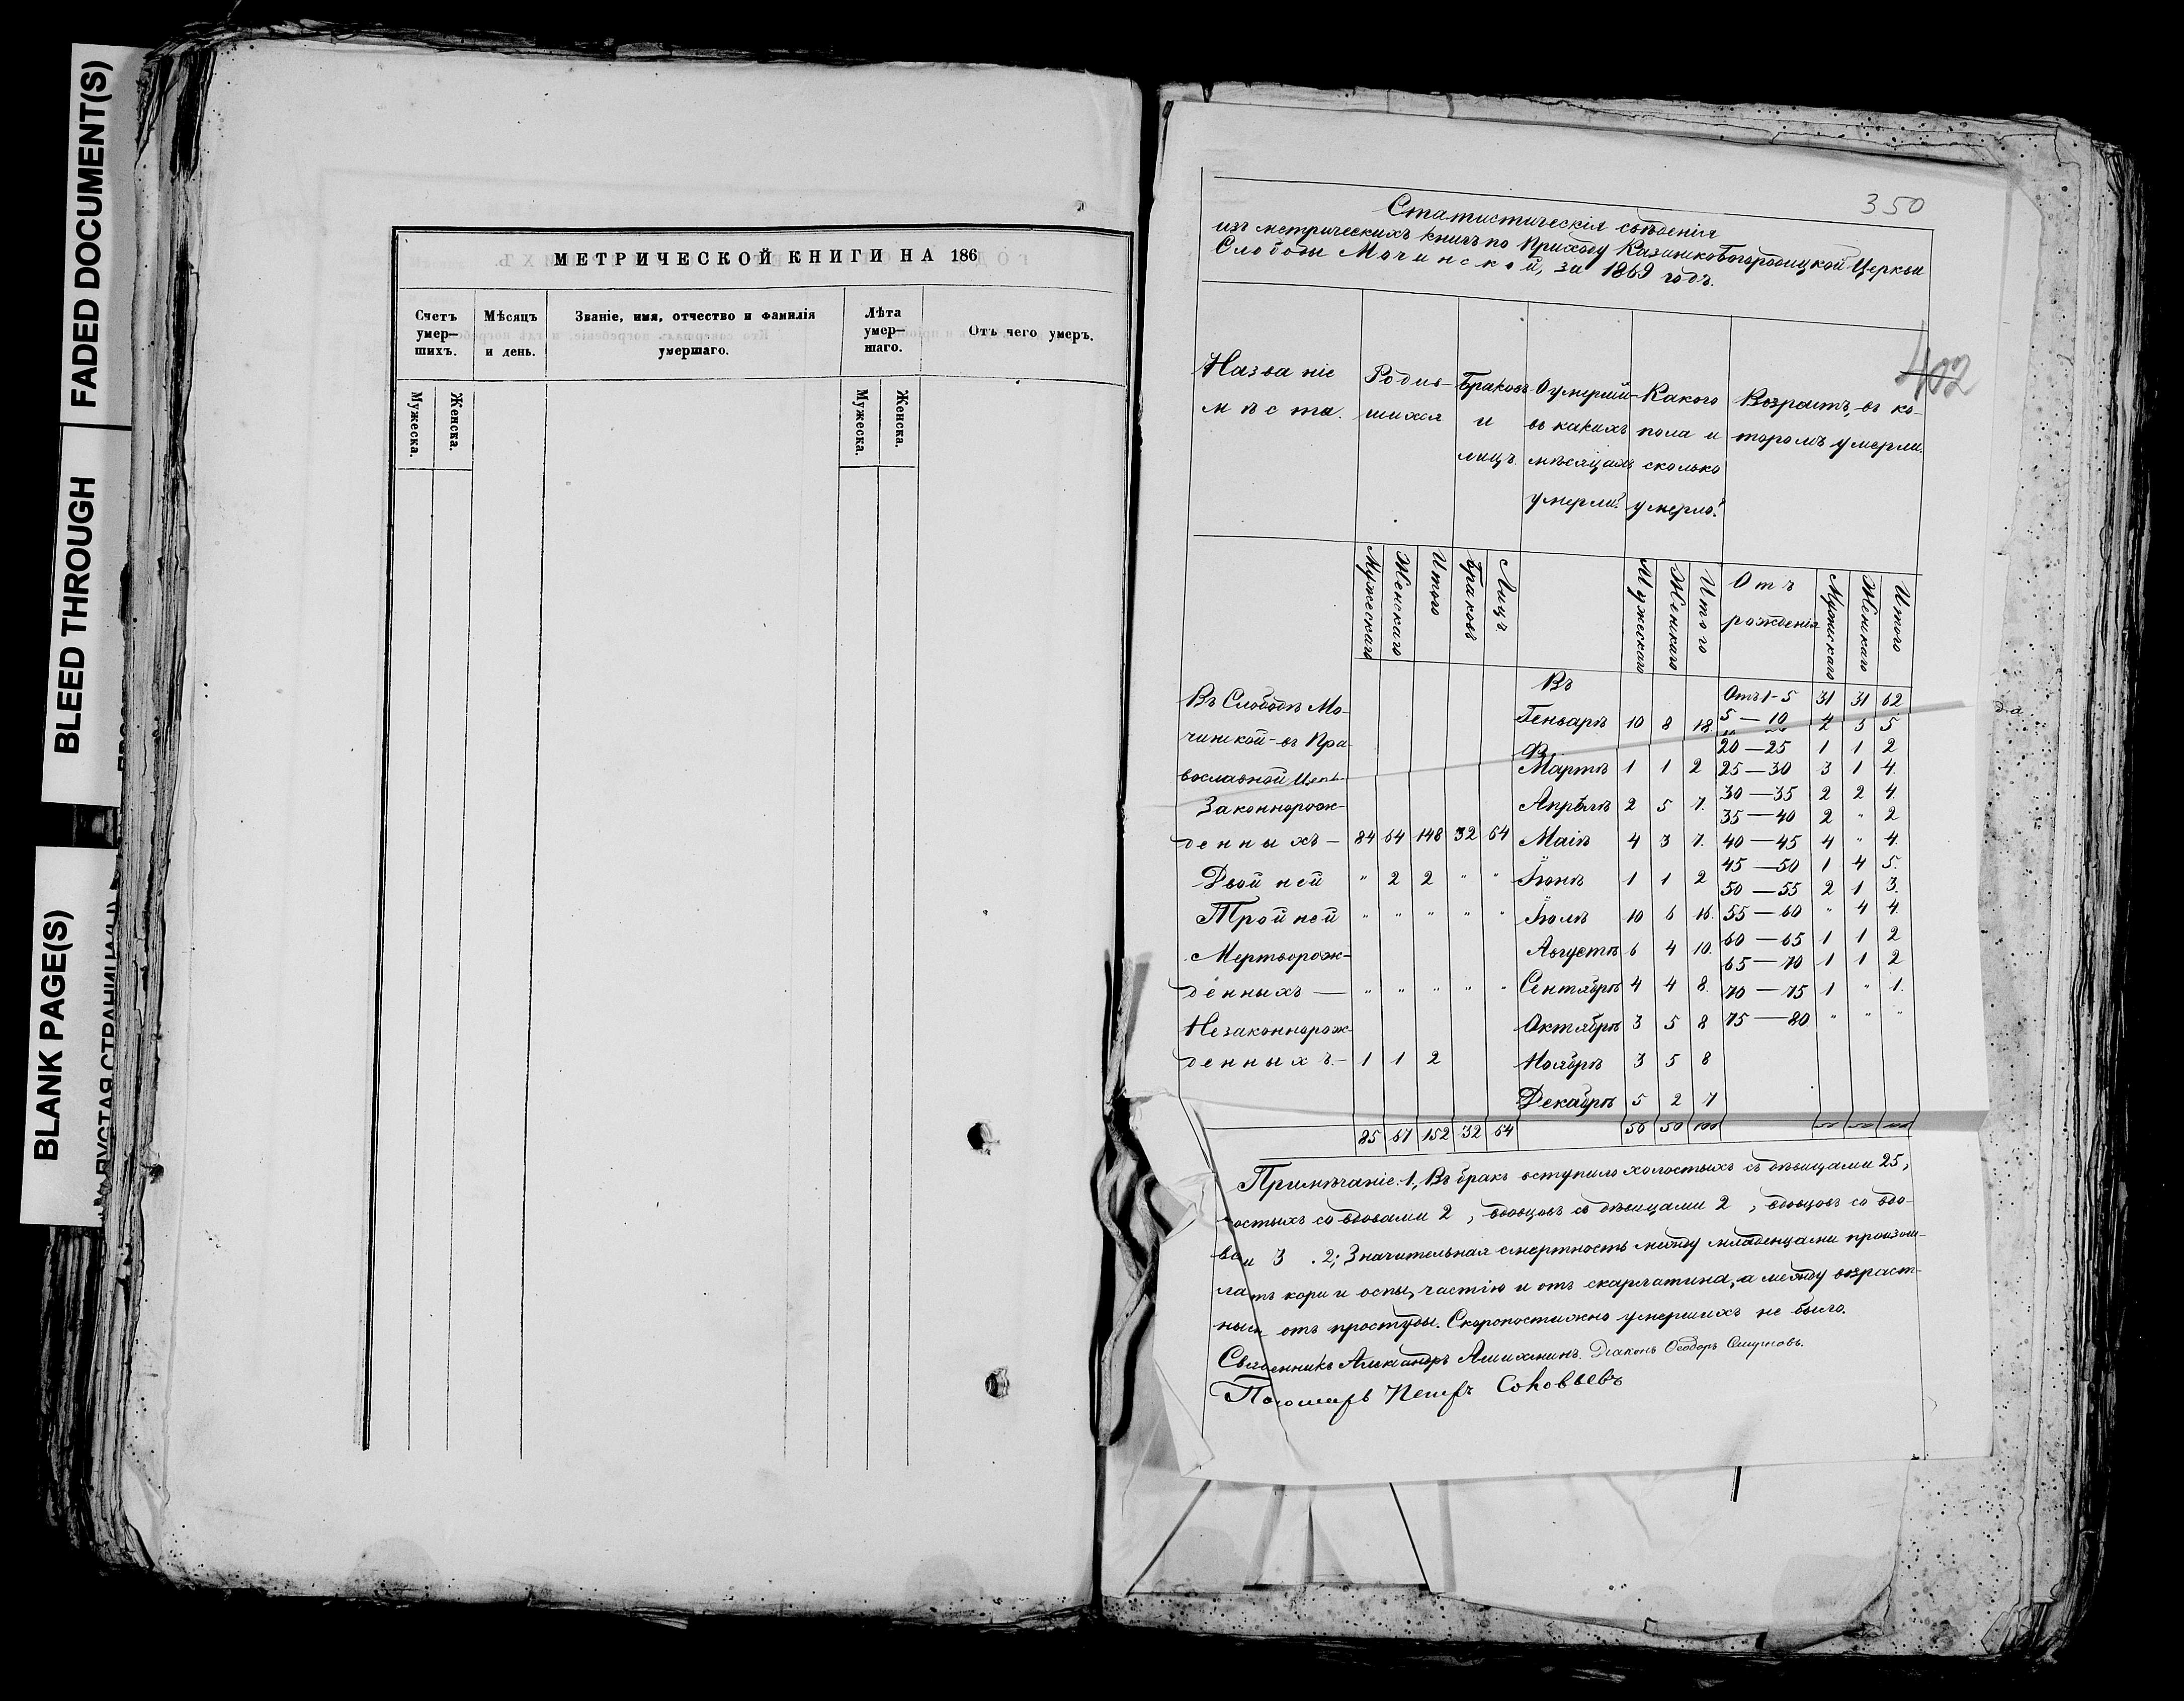 FADED DOCUMENT(S)
BLEED THROUGH
BLANK PAGE(S)
МЕТРИЧЕСКОЙ КНИГИ НА 186
Счетъ умер—шихъ.
Мѣсяцъ и день.
Званіе, имя, отчество и фамилія умершаго.
Лѣта умер—шаго.
Отъ чего умеръ.
Мужеска.
Женска.
Мужеска.
Женска.
350
Статистическія свѣденія
изъ метрическихъ книгъ по Приходу Казанскобогородицкой Церкви
Слободы Мочинской, за 1869 годъ.
402
Названіе мѣста.
Родив-шихся
Браковъ и лицъ.
въ какихъ мѣсяцахъ умерли?
Какого пола и сколько умерло?
Возрастъ, въ ко-торомъ умерли.
Мужескаго Женскаго Итого Браковъ Лицъ. Мужескаго Женскаго Итого Отъ рожденія Мужескаго Женскаго Итого
Въ
Въ Слободѣ Мо- Отъ 1-5 31 31 62
Генварѣ 10 8 18. 5—10
чинской-въ Пра- 20—25 1 1 2
вославной Мартѣ 1 1 2 25—30 3 1 4.
Законнорож- Апрѣлѣ 2 5 7. 30—35 2 2 4
35—40 2 " 2
денныхъ— 84 64 148 32 64 Маіѣ 4 3 7. 40—45 4 " 4.
45—50 1 4 5.
Двойней " 2 2 " " Іюнѣ 1 1 2 50—55 2 1 3.
Тройней " " " " " Іюлѣ 10 6 16. 55—60 " 4 4.
Мертворож- Августѣ 6 4 10. 60—65 1 1 2
65—70 1 1 2
денныхъ— " " " " " Сентябрѣ 4 4 8. 70—75 1 " 1.
Незаконнорож- Октябрѣ 3 5 8 75—80 " " "
денныхъ.— 1 1 2 Ноябрѣ 3 5 8
Декабрѣ 5 2 7
85 67 152 32 64 50 50 100
Примѣчаніе. 1, Въ бракъ вступило холостыхъ съ дѣвицами 25,
со вдовами 2, вдовцовъ съ дѣвицами 2, вдовцовъ со вдо-
3. 2; Значительная смертность между младенцами произош-
кори и оспы, частію и отъ скарлатина, а между возраст-
отъ простуды. Скоропостижно умершихъ не было.
Священникъ Александръ Діаконъ Ѳеодоръ Смирновъ.
Петръ Соловьевъ